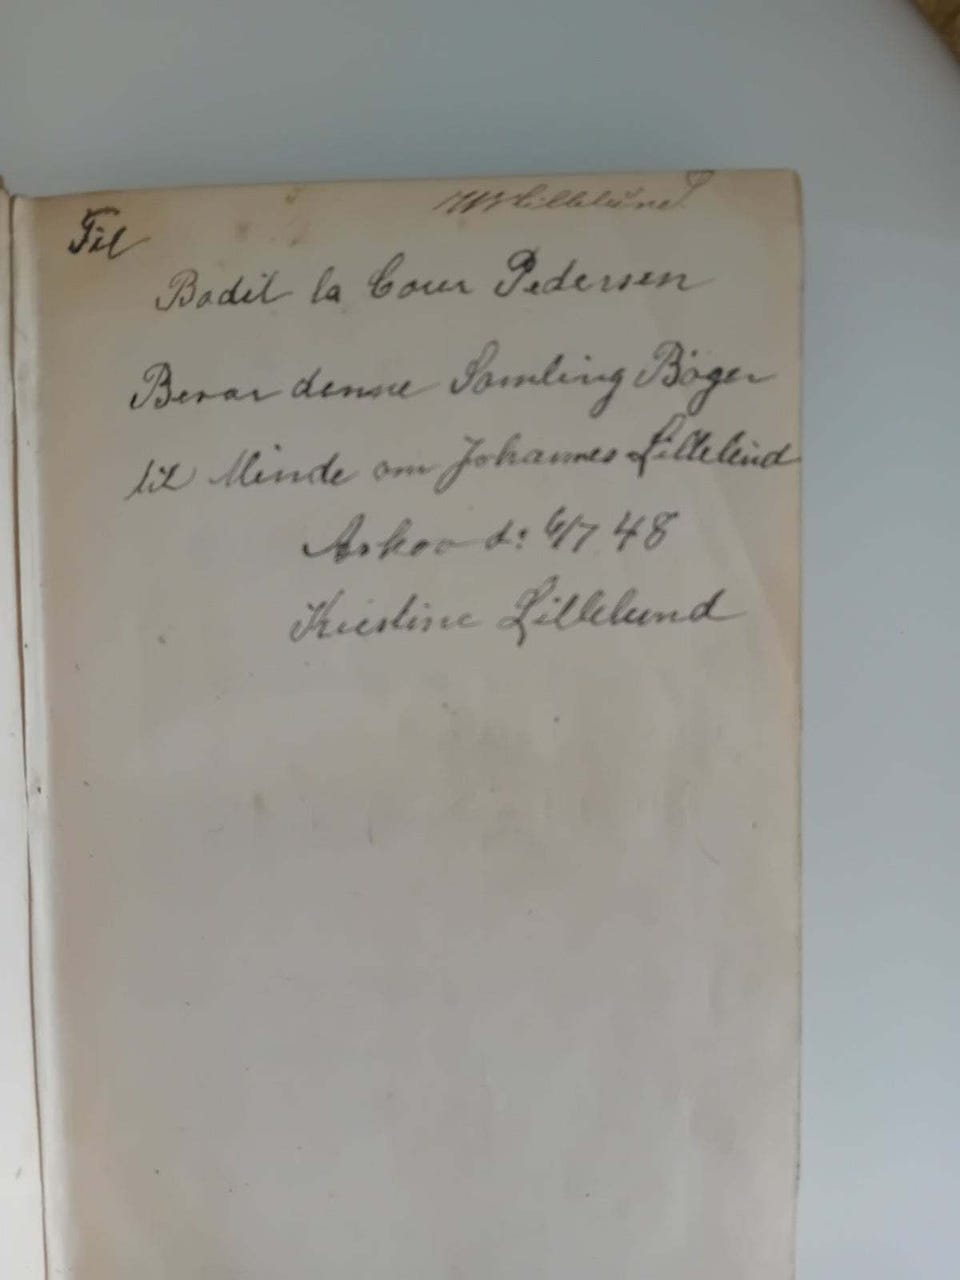 Lillelund
Til
Bodil la Cour Pedersen
Bevar denne Samling Bøger
til Minde om Johannes Lillelund
Askov d: 6/7 48
Kristine Lillelund